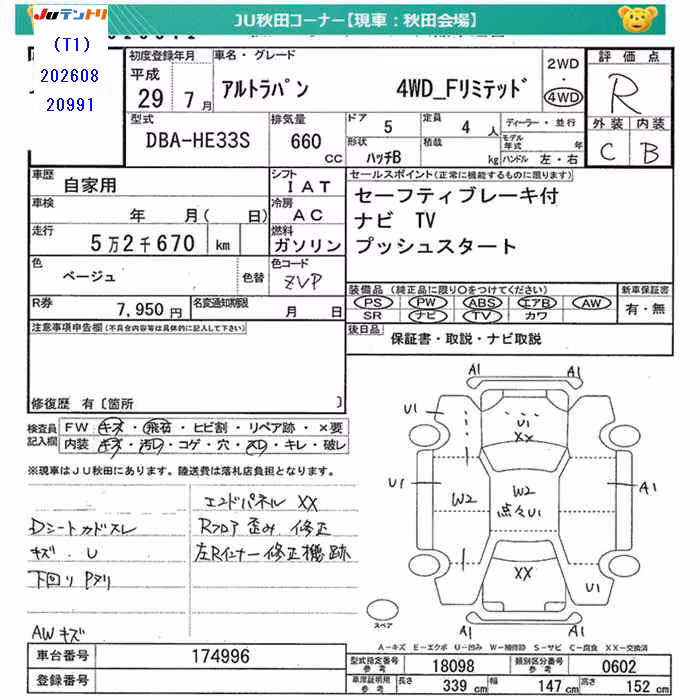 Juテントリ
JU秋田コーナー【現車：秋田会場】
(T1)
202608
20991
初度登録年月
平成
29 7月
車名・グレード
アルトラパン 4WD_Fリミテッド
2WD
・
4WD
評価点
R
型式
DBA-HE33S
排気量
660 CC
ドア 5
定員 4 人
ディーラー・並行
形状 ハッチB
積載 kg
モデル年式 年
ハンドル 左・右
外装 内装
C B
車歴 自家用
シフト IAT
車検 年 月( 日)
冷房 AC
走行 5万2千670 km
燃料 ガソリン
色 ベージュ 色替
色コード ZVP
R券 7,950円
名変通知期限 月 日
セールスポイント(正常に機能するものに限ります)
セーフティブレーキ付
ナビ TV
プッシュスタート
装備品 (純正品に限り○をつけてください)
新車保証書
PS PW ABS エアB AW
有・無
SR ナビ TV カワ
後日品 保証書・取説・ナビ取説
注意事項申告欄(不具合内容等は具体的に記入して下さい)
修復歴 有〔箇所 〕
検査員記入欄
FW キズ・飛石・ヒビ割・リペア跡・×要
内装 キズ・汚レ・コゲ・穴・スレ・キレ・破レ
※現車はJU秋田にあります。陸送費は落札店負担となります。
エンドパネル XX
Dシートカドスレ Rフロア 歪み 修正
キズ・U 左Rインナー修正機跡
下回りPヌリ
AWキズ
A1 A1
U1 U1
XX
U1 W2 W2 A1
点々U1
XX U1
A1 A1
スペア
A－キズ E－エクボ U－凹み W－補修跡 S－サビ C－腐食 XX－交換済
車台番号 174996
登録番号
型式指定番号 参考 18098
類別区分番号 参考 0602
車庫証明用 参考 長さ 339 cm 幅 147 cm 高さ 152 cm